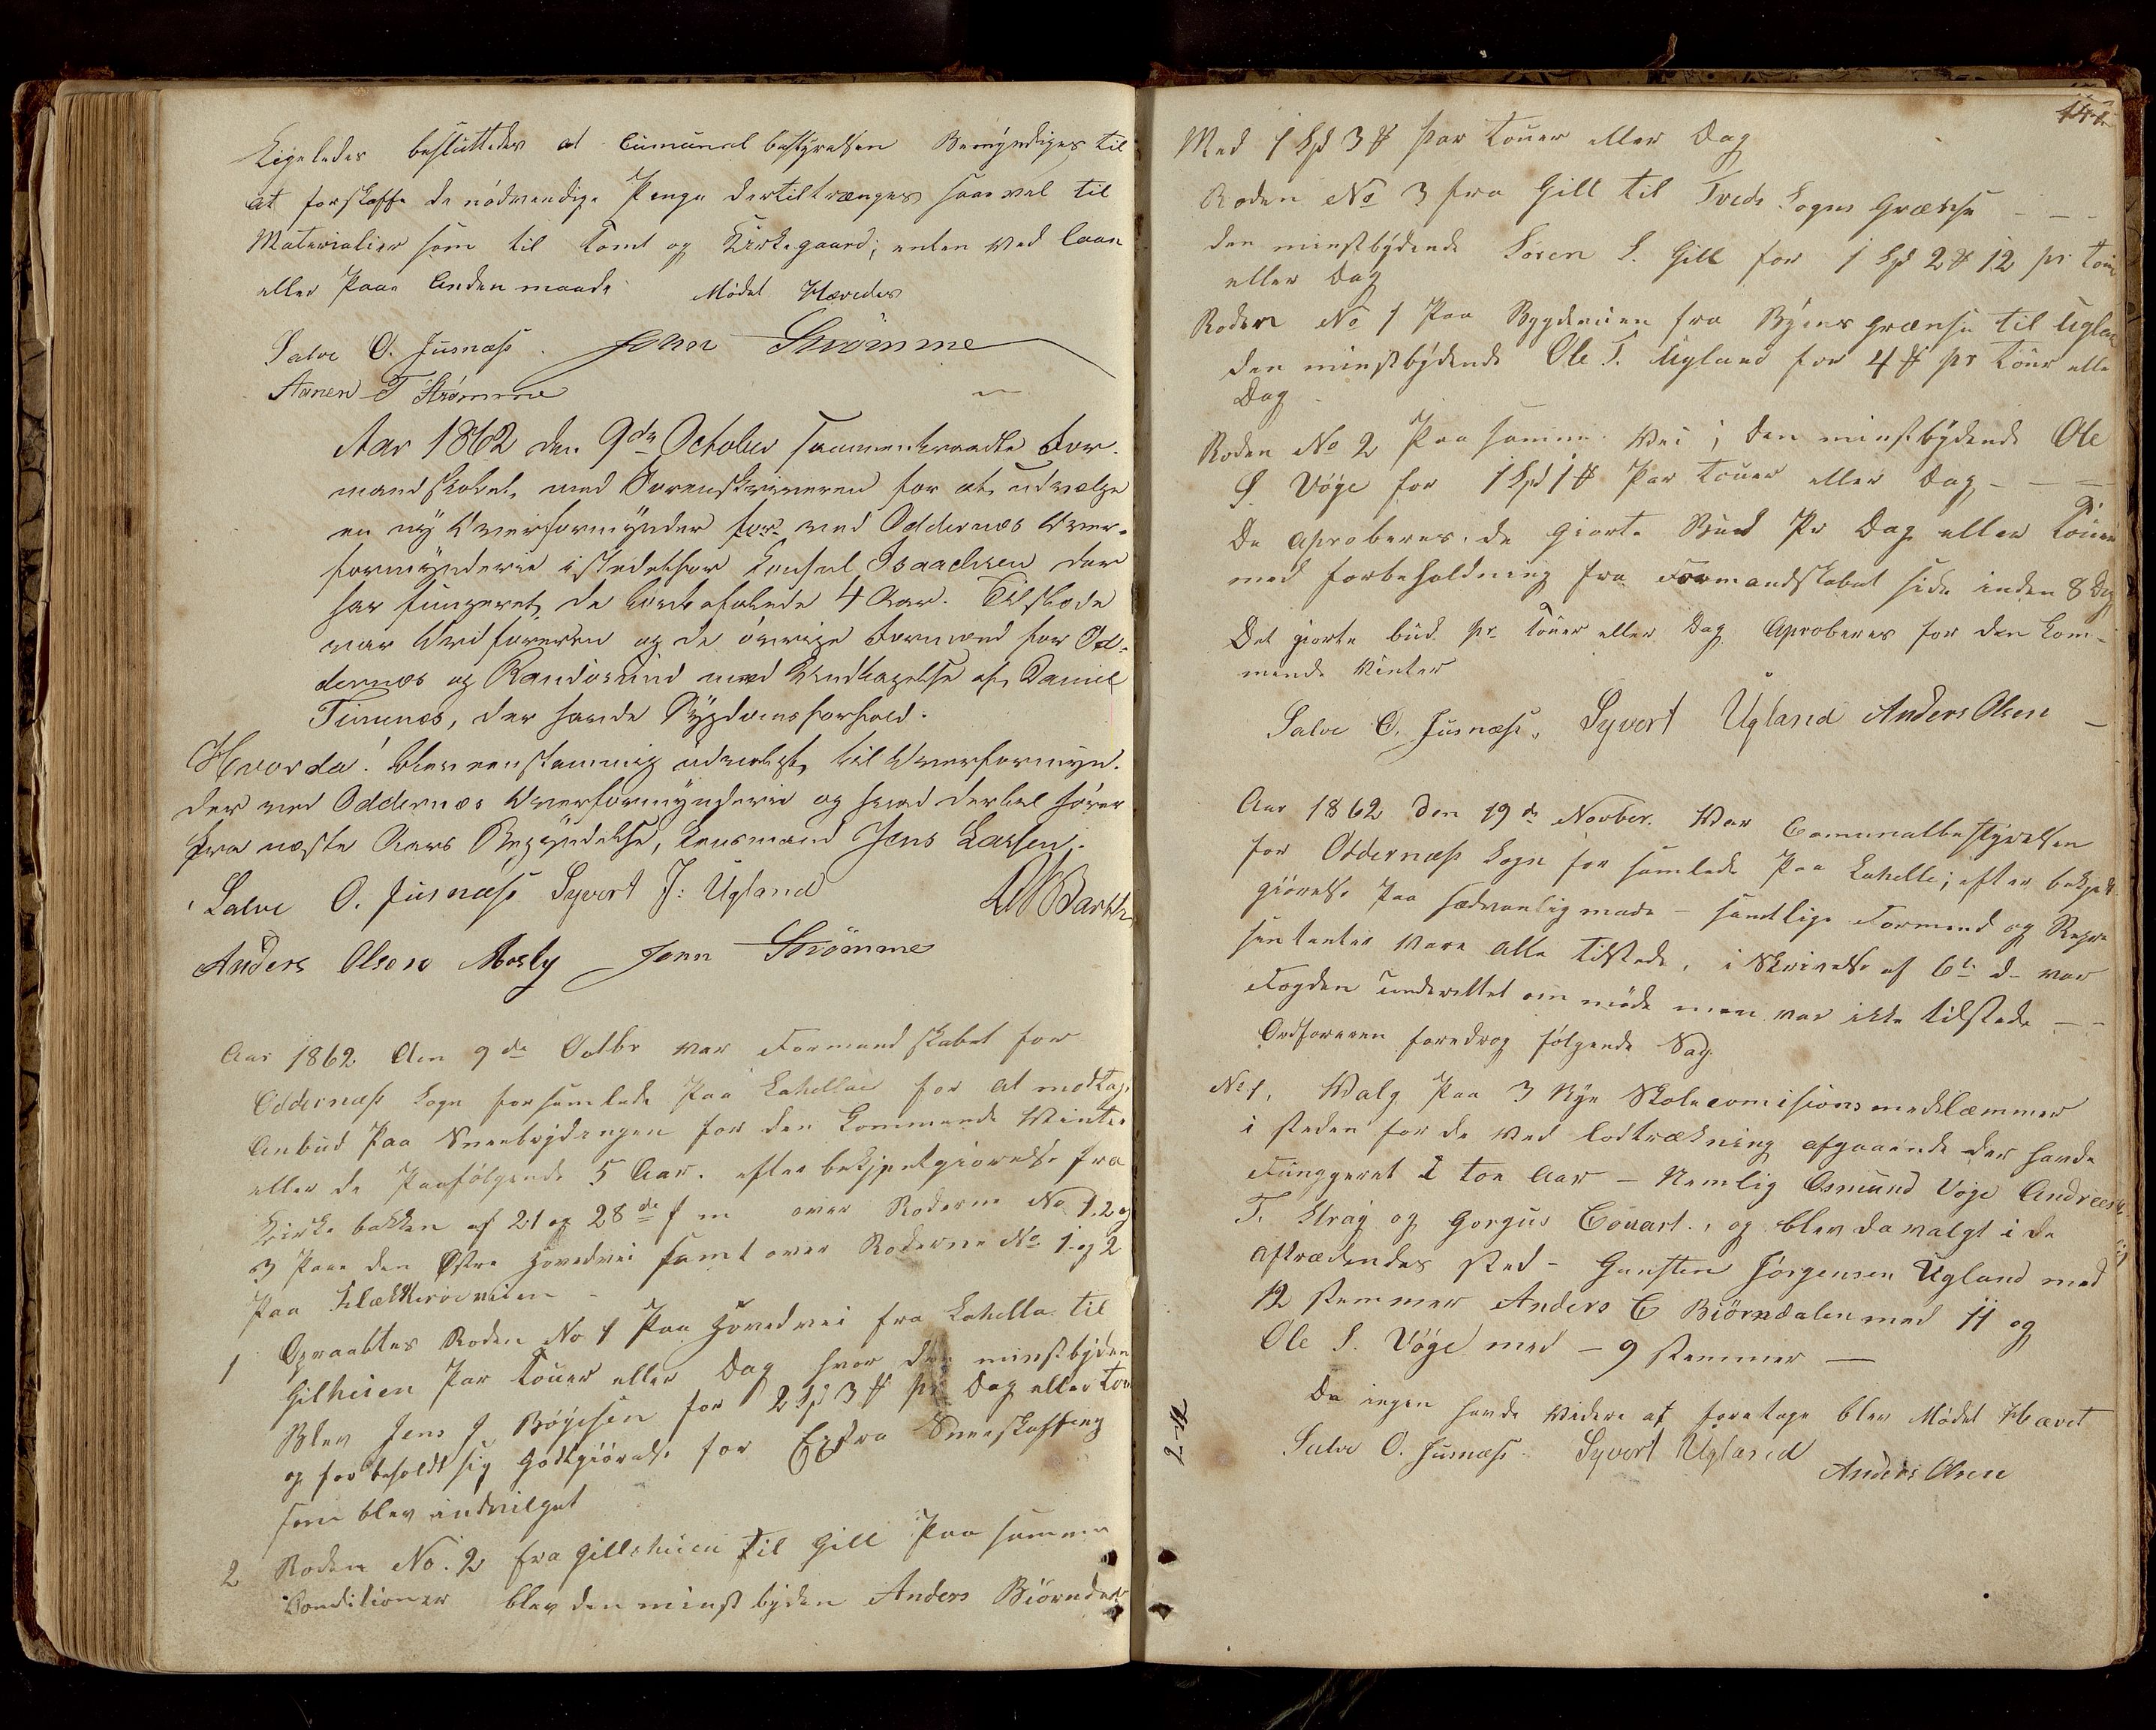 Ligeledes besluttedes at Cumunal bestyrelsen Bemyndiges til
at forskaffe de nödvendige Penge dertiltrænges saavel til
Materialier som til Tomt og Kirkegaard; enten Ved laan
eller Paa Anden maade Mödet Hævedes
Salve O. Jusnæss. John Strömme
Aanen T Strömme
Aar 1862 den 9de October sammentraadte For-
mandskabet med Sorenskriveren for at udvælge
en ny Overformynder for ved Oddernes Over-
formynderie istedetfor Consul Isaachsen der
har fungeret de lovbefalede 4 Aar. Tilstede
var Ordføreren og de övrige Formænd for Od-
dernes og Randösund med Undtagelse af Daniel
Timenes, der havde Sygdomsforfald.
Hvorda! blev eenstemmig udvalgt til Overformyn-
der ved Oddernes Overformynderie og hvad dertil hører
fra næste Aars Begyndelse, Lensmand Jens Larsen.
Salve O. Jusnæss Syvert J: Ugland Barth
Anders Olsen Mosby John Strömme
Aar 1862 den 9de Octbr var Formandskabet for
Oddernæss Sogn forsamlede Paa Lahelle for at modtage
Anbud Paa Sneebrydningen for den Kommende Vinter
eller de Paafølgende 5 Aar. efter bekjentgiørelse fra
Kirke bakken af 21 og 28de f m over Roderne No 1.2 og
3 Paa den Østre Hovedvei samt over Roderne No 1 og 2
Paa Flækkerøeveien -
1 Opraabtes Roden No 1 Paa Hovedvei fra Lahella til
Gilheien Par Touer eller Dag hvor den minstbyden
Blev Jens J. Böyesen for 2 Spd 3 # pr Dag eller Tou
og forbeholdt sig Godtgiörelse for Extra Sneeskuffing
som blev indvilget
2 Roden No. 2 fra Gillsheien til Gill Paa samme
Conditioner blev den minstbyden Anders Biörndal
Med 1 Spd 3 # Par Touer eller Dag
Roden No 3 fra Gill til Tveds Sogns Grændse - - -
den minstbydende Sören S. Gill for 1 Spd 2 # 12 pr Tou
eller Dag
Roden No 1 Paa Bygdeveien fra Byens Grænse til Uglan
den minstbydende Ole T. Ugland for 4 # pr Touer elle
Dag
Roden No 2 Paa samme Vei; den minstbydende Ole
S. Vöge for 1 Spd 1 # Par Touer eller Dag - - -
De Aproberes. de giorte Bud Pr Dag eller Touer
med forbeholdning fra Formandskabet side inden 8 Dag
Det giorte bud pr Touer eller Dag Aproberes for den kom-
mende Vinter
Salve O. Jusnæss. Syvert Ugland Anders Olsen -
Aar 1862 den 19de Novber. Var Comunalbestyrelsen
for Oddernæss Sogn for samlede Paa Lahelle; efter bekjent
giörelse Paa sædvanlig maade - samtlige Formend og Repre
sentanter vare alle tilstede, i Skrivelse af 6te ds var
Fogden underettet om möde men var ikke tilstede - -
Ordføreren foredrog følgende Sag
No 1. Valg Paa 3 Nye Skolecomisionsmedlæmmer
i steden for de Ved lodtrækning afgaaende der havde
Funggeret 2 toe Aar - Nemlig Osmund Voge Andreas
T. Straÿ og Gorgus Couart., og blev da valgt i de
aftrædendes sted - Gunsten Jörgensen Ugland med
12 stemmer Anders C Biörndalen med 11 og
Ole S. Vöge med - 9 stemmer -
Da ingen havde Videre at foretage blev Mödet Hævet
Salve O. Jusnæss. Syvert Ugland
Anders Olsen